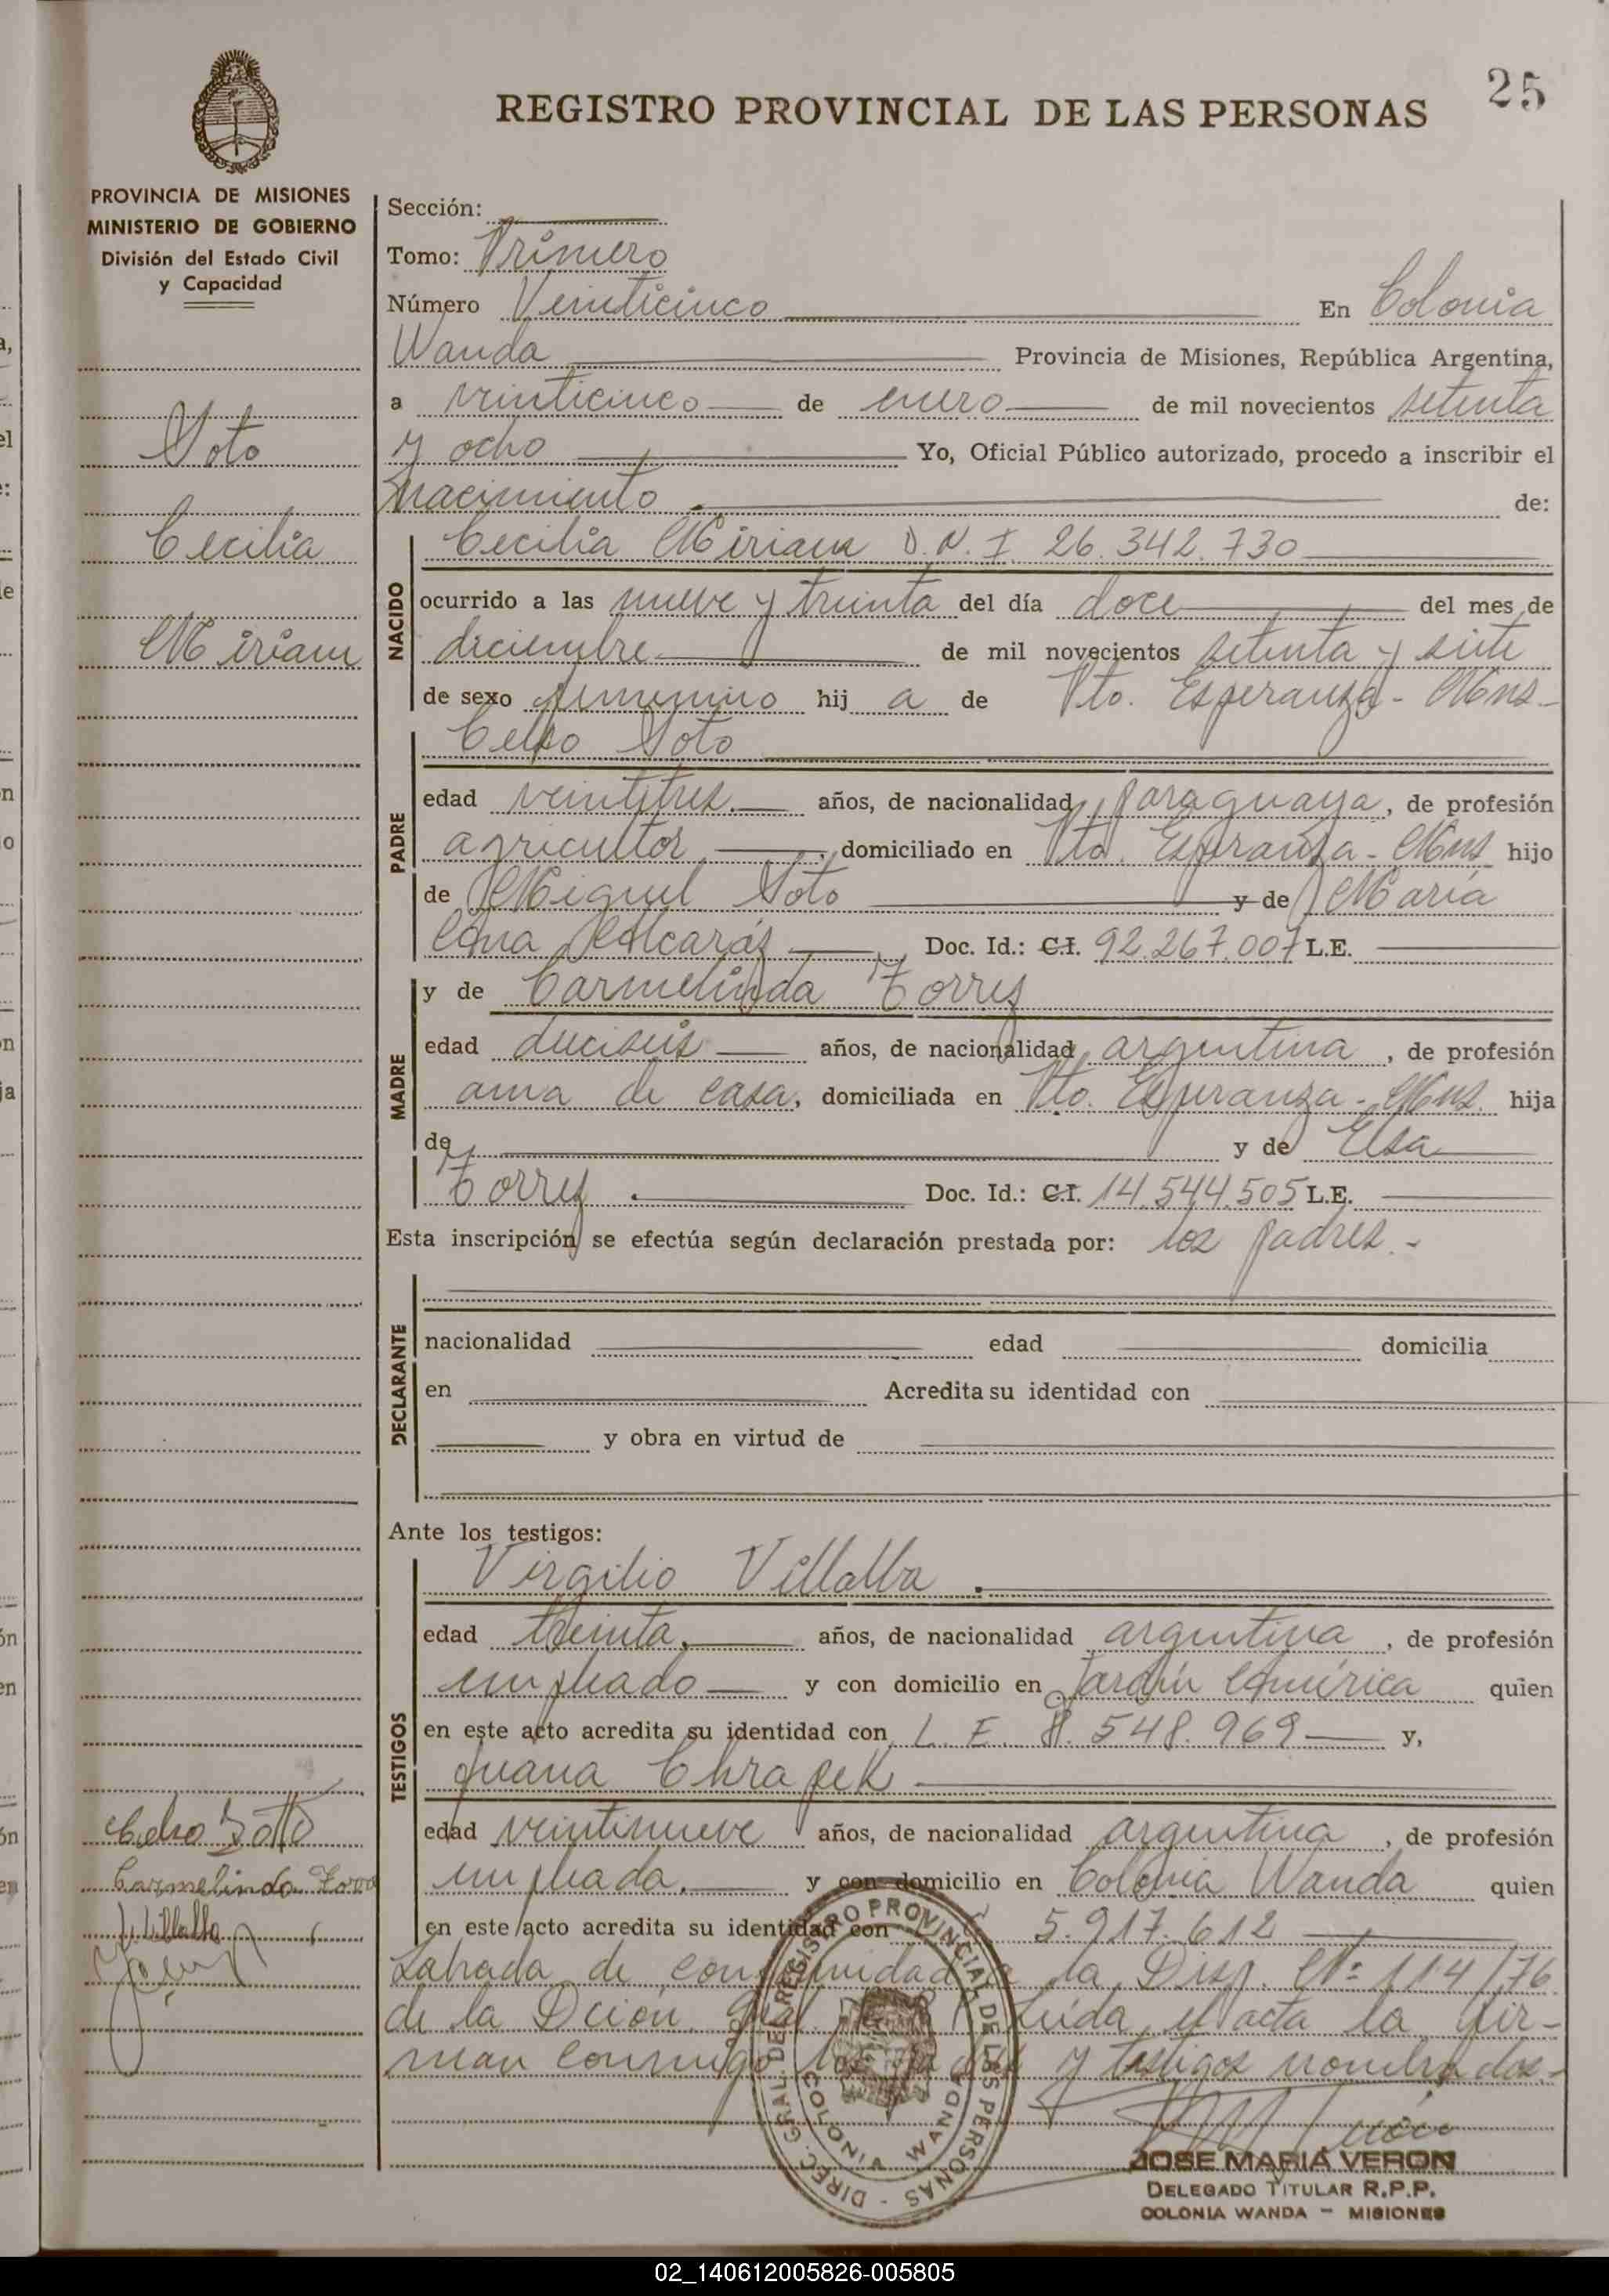 25
REGISTRO PROVINCIAL DE LAS PERSONAS
PROVINCIA DE MISIONES
MINISTERIO DE GOBIERNO
División del Estado Civil
y Capacidad
Soto
Cecilia
Miriam
Sección:
Tomo: Primero
Número Veinticinco En Colonia
Wanda Provincia de Misiones, República Argentina,
a veinticinco de enero de mil novecientos setenta
y ocho Yo, Oficial Público autorizado, procedo a inscribir el
nacimiento. de:
NACIDO
Cecilia Miriam D.N.I. 26.342.730
ocurrido a las nueve y treinta del día doce del mes de
diciembre de mil novecientos setenta y siete
de sexo femenino hij a de Pto. Esperanza - Mns -
PADRE
Celso Soto
edad veintitres años, de nacionalidad paraguaya, de profesión
agricultor, domiciliado en Pto. Esperanza - Mns hijo
de Miguel Soto y de María
Ana Alcaráz Doc. Id.: C.I. 92.267.007 L.E.
MADRE
y de Carmelinda Torres
edad dieciseis años, de nacionalidad argentina, de profesión
ama de casa, domiciliada en Pto. Esperanza - Mns. hija
de y de Elsa
Torres. Doc. Id.: C.I. 14.544.505 L.E.
Esta inscripción se efectúa según declaración prestada por: los padres.-
DECLARANTE
nacionalidad edad domicilia
en Acredita su identidad con
y obra en virtud de
Ante los testigos:
TESTIGOS
Virgilio Villalba.
edad treinta, años, de nacionalidad argentina, de profesión
empleado y con domicilio en Jardín América quien
en este acto acredita su identidad con L.E. 8.548.969 y,
Juana Chrapek
edad veintinueve años, de nacionalidad argentina, de profesión
empleada, y con domicilio en Colonia Wanda quien
en este acto acredita su identidad con 5.917.612
Labrada de conformidad a la Disp. Nº 114/76
de la Dción. Gral. Leída el acta la fir-
man conmigo los padres y testigos nombrados.-
Celso Soto
Carmelinda Torre
V. Villalba
DIREC. GRAL. DE REGISTRO PROVINCIAL DE LAS PERSONAS -
COLONIA WANDA
JOSE MARIA VERON
DELEGADO TITULAR R.P.P.
COLONIA WANDA - MISIONES
02_140612005826-005805